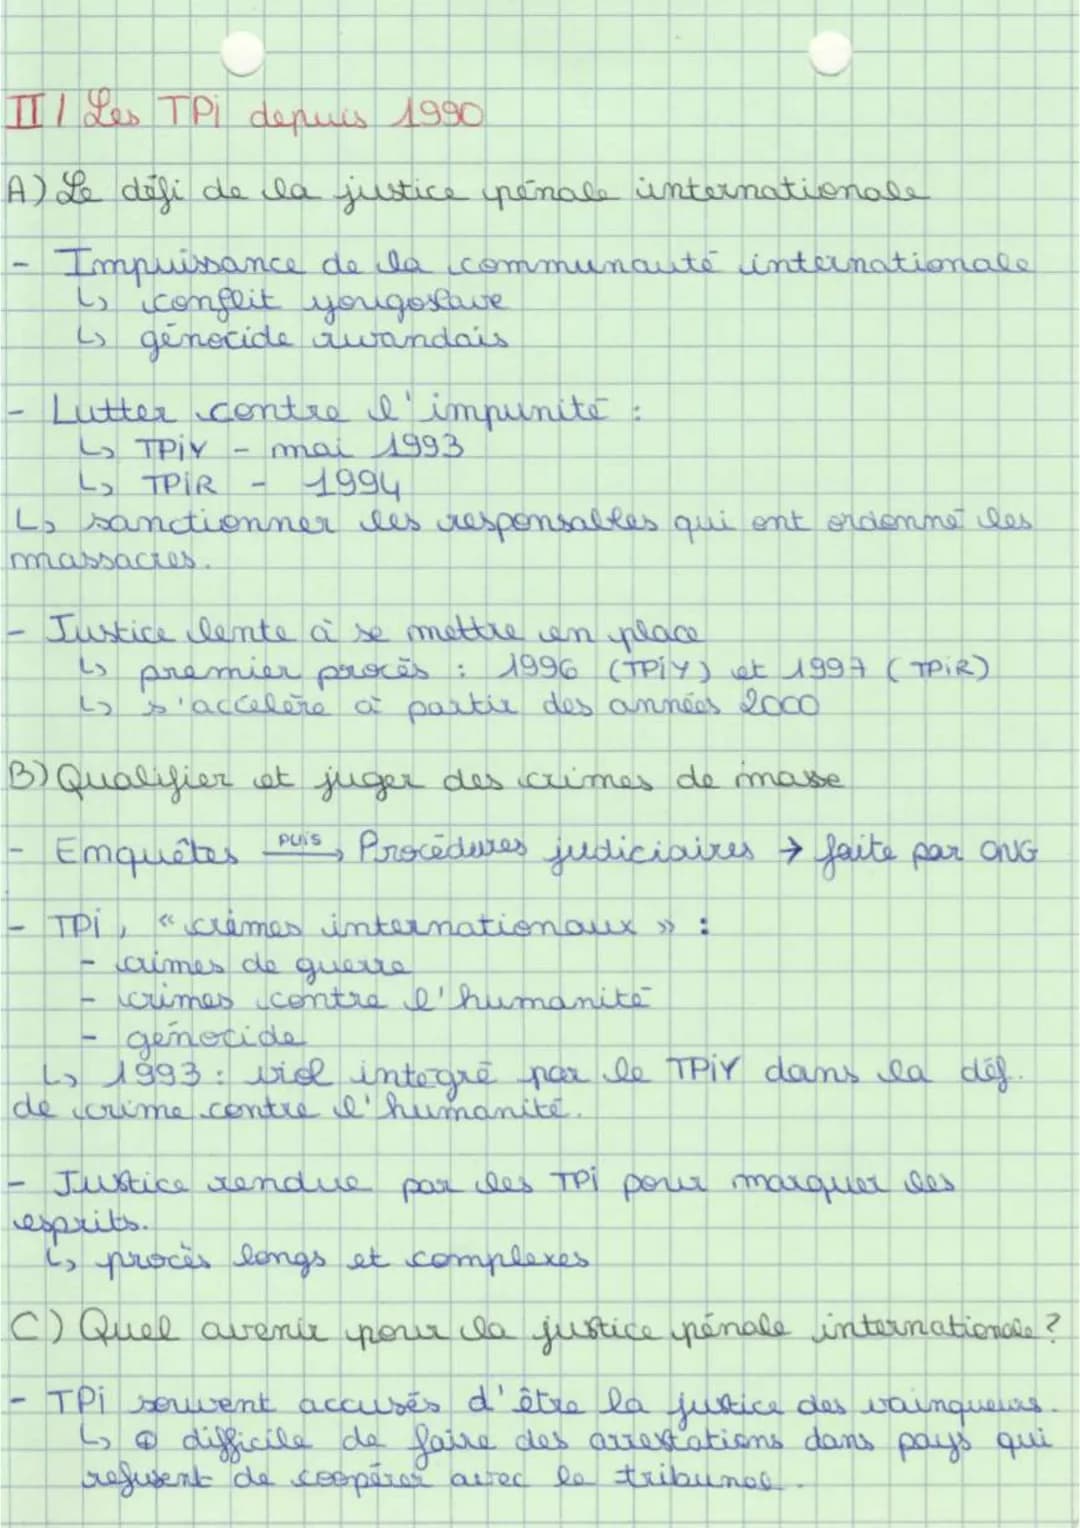 II / Les TPi depuis 1990
A) Le défi de la justice pénale internationale
- Impuissance de la communauté internationale
↳ conflit yougoslave
↳ génocide rwandais
- Lutter contre l'impunité :
↳ TPiY - mai 1993
↳ TPiR - 1994
↳ sanctionner les responsables qui ont ordonné les
massacres.
- Justice lente à se mettre en place
↳ premier procès : 1996 (TPiY) et 1997 (TPiR)
↳ s'accélère à partir des années 2000
B) Qualifier et juger des crimes de masse
- Emquêtes puis → Procédures judiciaires → faite par ONG
- TPi, « crimes internationaux » :
- crimes de guerre
- crimes contre l'humanité
- génocide
↳ 1993 : viol intégré par le TPiY dans la déf.
de crime contre l'humanité.
- Justice rendue par les TPi pour marquer les
esprits.
↳ procès longs et complexes
C) Quel avenir pour la justice pénale internationale ?
- TPi souvent accusés d'être la justice des vainqueurs.
↳ ⊕ difficile de faire des arrestations dans pays qui
refusent de coopérer avec le tribunal.